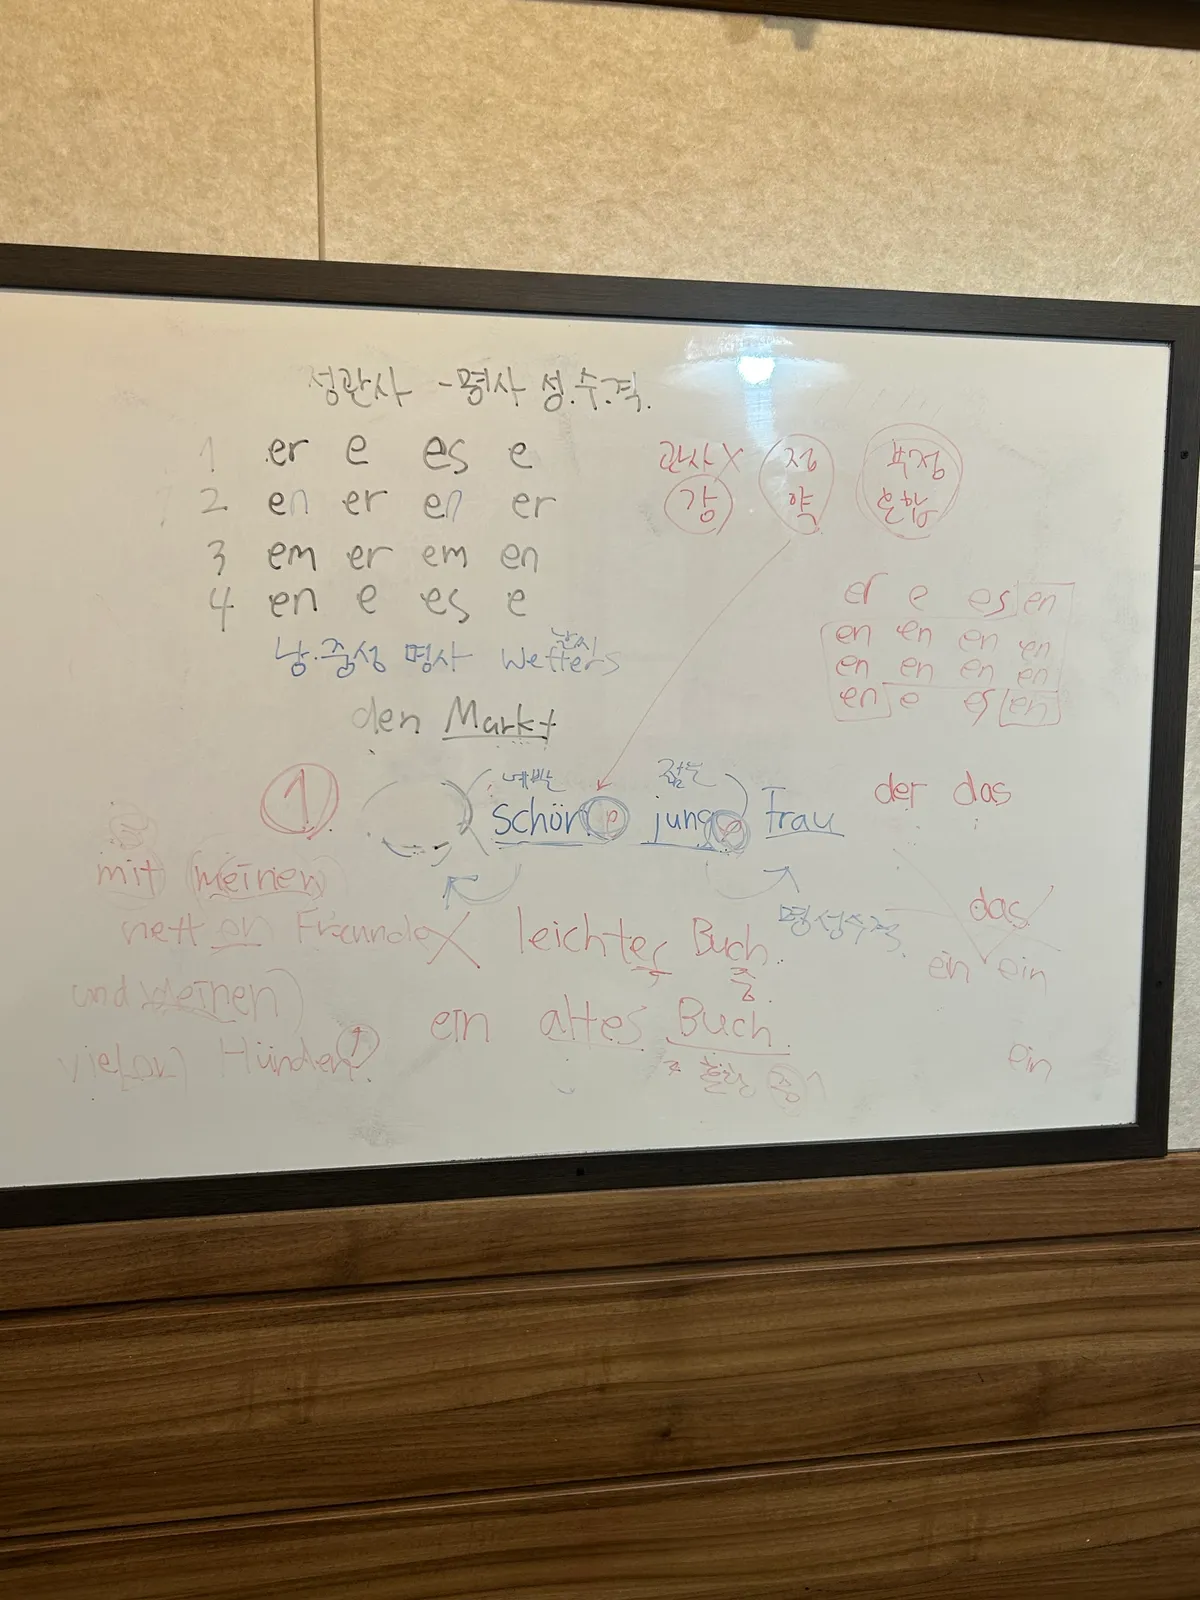 성관사 - 명사 성.수.격.
1 er e es e
2 en er en er
3 em er em en
4 en e es e
관사X 정 부정
강 약 혼합
er e es en
en en en en
en en en en
en e es en
남.중성 명사 Wetters
날씨
den Markt
예쁜 젊은
① schöne junge Frau
der das
mit meinen
netten Freunde X
leichtes Buch.
중.
명 성수격.
das
ein ein
und meinen
ein altes Buch.
혼합 중1
ein
Hünden!